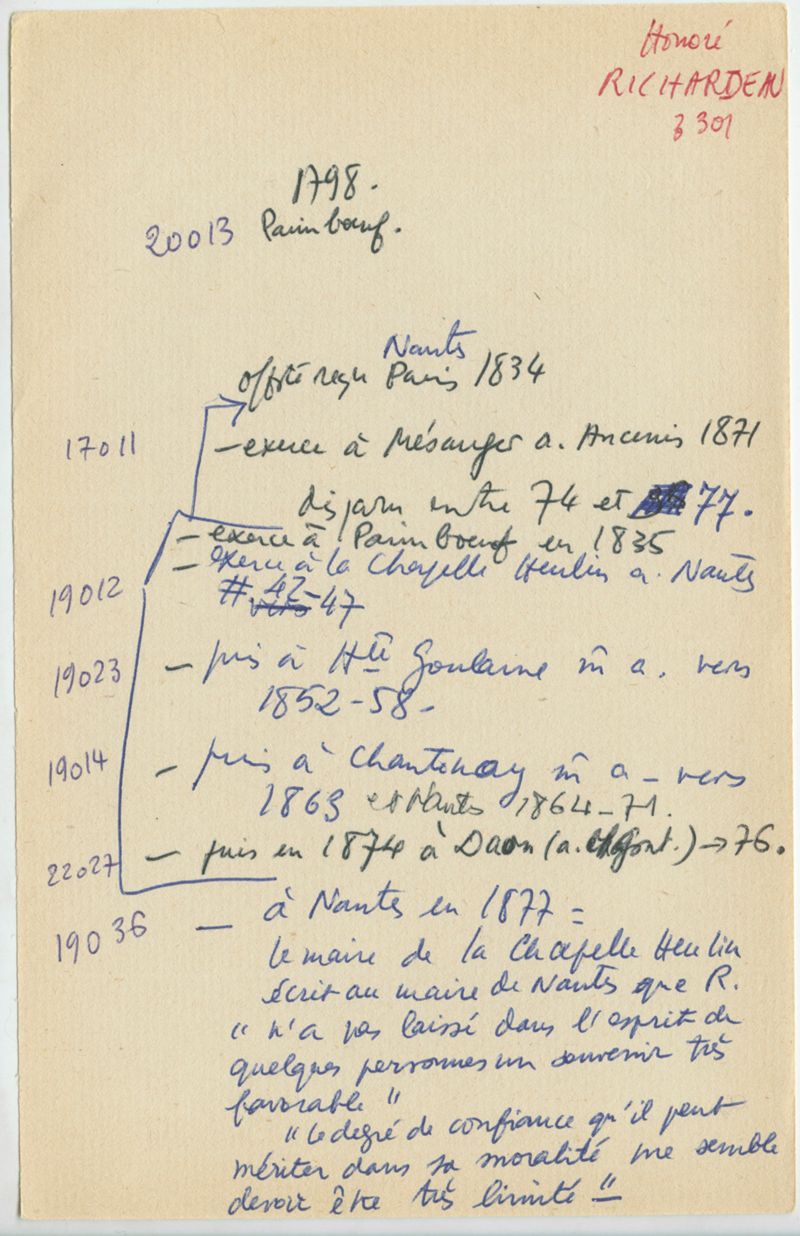 Honoré
RICHARDEAU
3301
1798.
20013 Paimbœuf.
Nantes
reçu Paris 1834
17011 - exerce à Mésanger a. Ancenis 1871
disparu entre 74 et 77.
- exerce à Paimbœuf en 1835
- exerce à la Chapelle Heulin a. Nantes
19012 #. 42-47
19023 - puis à Hte Goulaine m̄ a. vers
1852-58.
19014 - puis à Chantenay m̄ a - vers
1863 et Nantes 1864-71.
22027 - puis en 1874 à Daon (a. Chgont.) → 76.
19036 - à Nantes en 1877 =
le maire de la Chapelle Heulin
écrit au maire de Nantes que R.
" n'a pas laissé dans l'esprit de
quelques personnes un souvenir très
favorable "
" le degré de confiance qu'il peut
mériter dans sa moralité me semble
devoir être très limité "